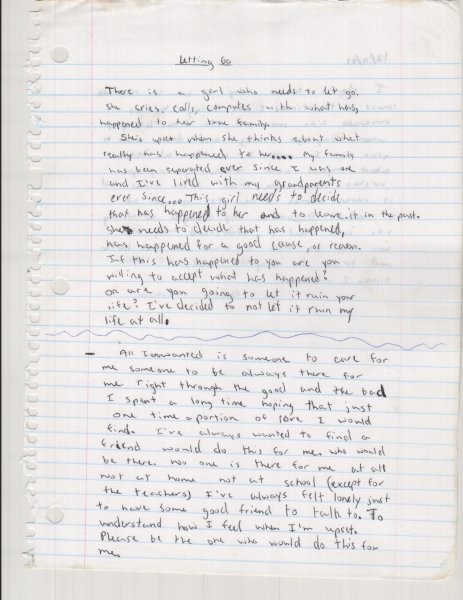 Letting Go
There is a girl who needs to let go.
She cries, calls, computes with what has,
happened to her true family.
She's upset when she thinks about what
really has happened to her.... My family
has been separated ever since I was one
and I've lived with my grandparents
ever since... This girl needs to decide
that has happened to her and to leave it in the past.
She needs to decide that has happened,
has happened for a good cause, or reason.
If this has happened to you are you
willing to accept what has happened?
Or are you going to let it ruin your
life? I've decided to not let it ruin my
life at all.
- All I wanted is someone to care for
me someone to be always there for
me right through the good and the bad
I spent a long time hoping that just
one time a portion of love I would
find. I've always wanted to find a
friend would do this for me. who would
be there. No one is there for me at all
not at home not at school (except for
the teachers) I've always felt lonely just
to have some good friend to talk to. To
understand how I feel when I'm upset.
Please be the one who would do this for
me.